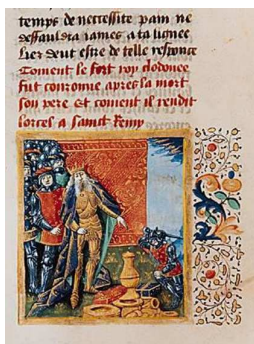 temps de necessite pain ne
deffauldra iames a ta lignee
lier deut estre de telle responce
Coment le fort roy clodouee
fut couronne apres la mort
son pere Et coment il rendit
lorcel a sainct Remy